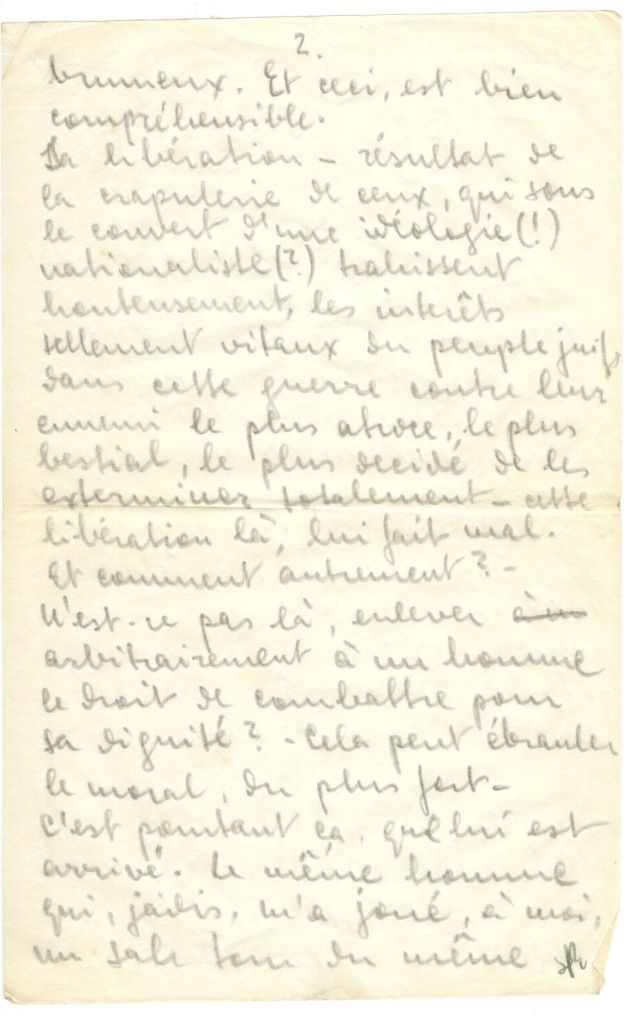 2.
brumeux. Et ceci, est bien
compréhensible.
La libération – résultat de
la crapulerie de ceux, qui sous
le couvert d'une idéologie(!)
nationaliste(?) trahissent
honteusement, les interêts
tellement vitaux du peuple juifs
dans cette guerre contre leur
ennemi le plus atroce, le plus
bestial, le plus decidé de les
exterminer totalement – cette
libération là, lui fait mal.
Et comment autrement? –
N'est-ce pas là, enlever
arbitrairement à un homme
le droit de combattre pour
sa dignité? – Cela peut ébranler
le moral, du plus fort –
C'est pourtant ça, que lui est
arrivé. Le même homme
qui, jadis, m'a joué, à moi,
un sale tour du même